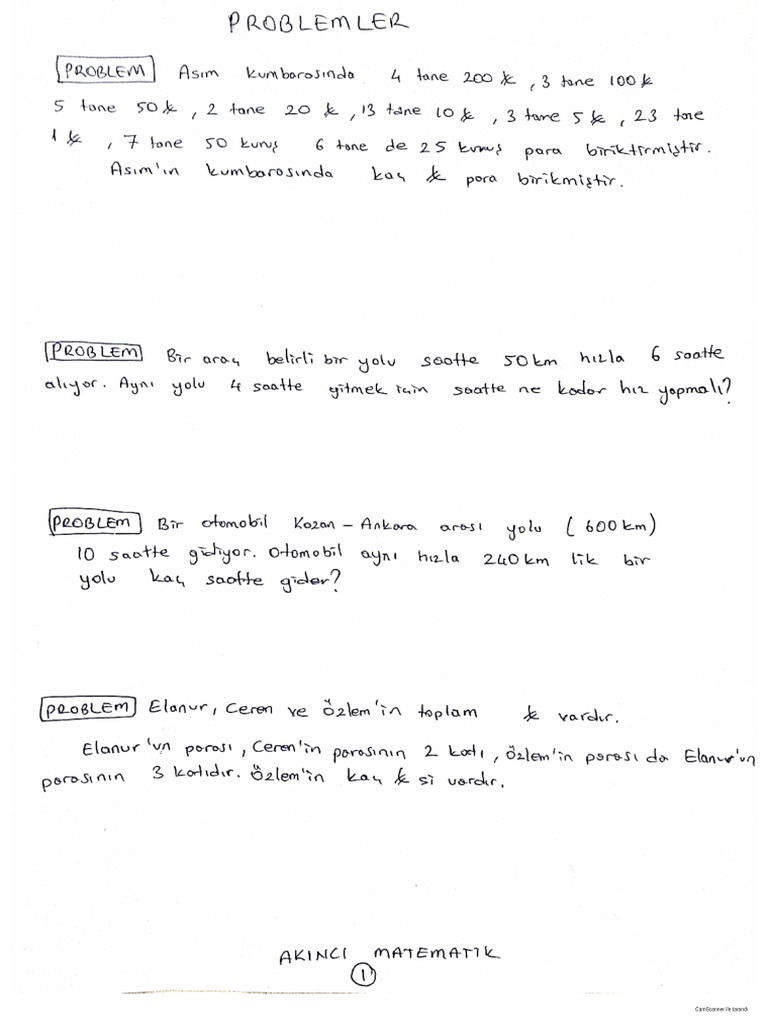 PROBLEMLER
PROBLEM Asım kumbarasında 4 tane 200 ₺, 3 tane 100 ₺
5 tane 50 ₺, 2 tane 20 ₺, 13 tane 10 ₺, 3 tane 5 ₺, 23 tane
1 ₺, 7 tane 50 kuruş 6 tane de 25 kuruş para biriktirmiştir.
Asım'ın kumbarasında kaç ₺ para birikmiştir.
PROBLEM Bir araç belirli bir yolu saatte 50 km hızla 6 saatte
alıyor. Aynı yolu 4 saatte gitmek için saatte ne kadar hız yapmalı?
PROBLEM Bir otomobil Kozan - Ankara arası yolu (600 km)
10 saatte gidiyor. Otomobil aynı hızla 240 km lik bir
yolu kaç saatte gider?
PROBLEM Elanur, Ceren ve Özlem'in toplam ₺ vardır.
Elanur'un parası, Ceren'in parasının 2 katı, Özlem'in parası da Elanur'un
parasının 3 katıdır. Özlem'in kaç ₺ si vardır.
AKINCI MATEMATİK
1
CamScanner ile tarandı